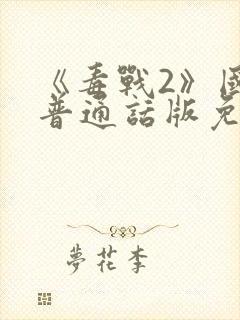 《毒戰2》國
普通話版免
夢花李